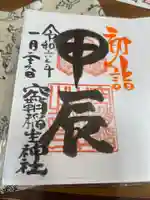 初詣
甲辰
令和六年
一月
稲生神社